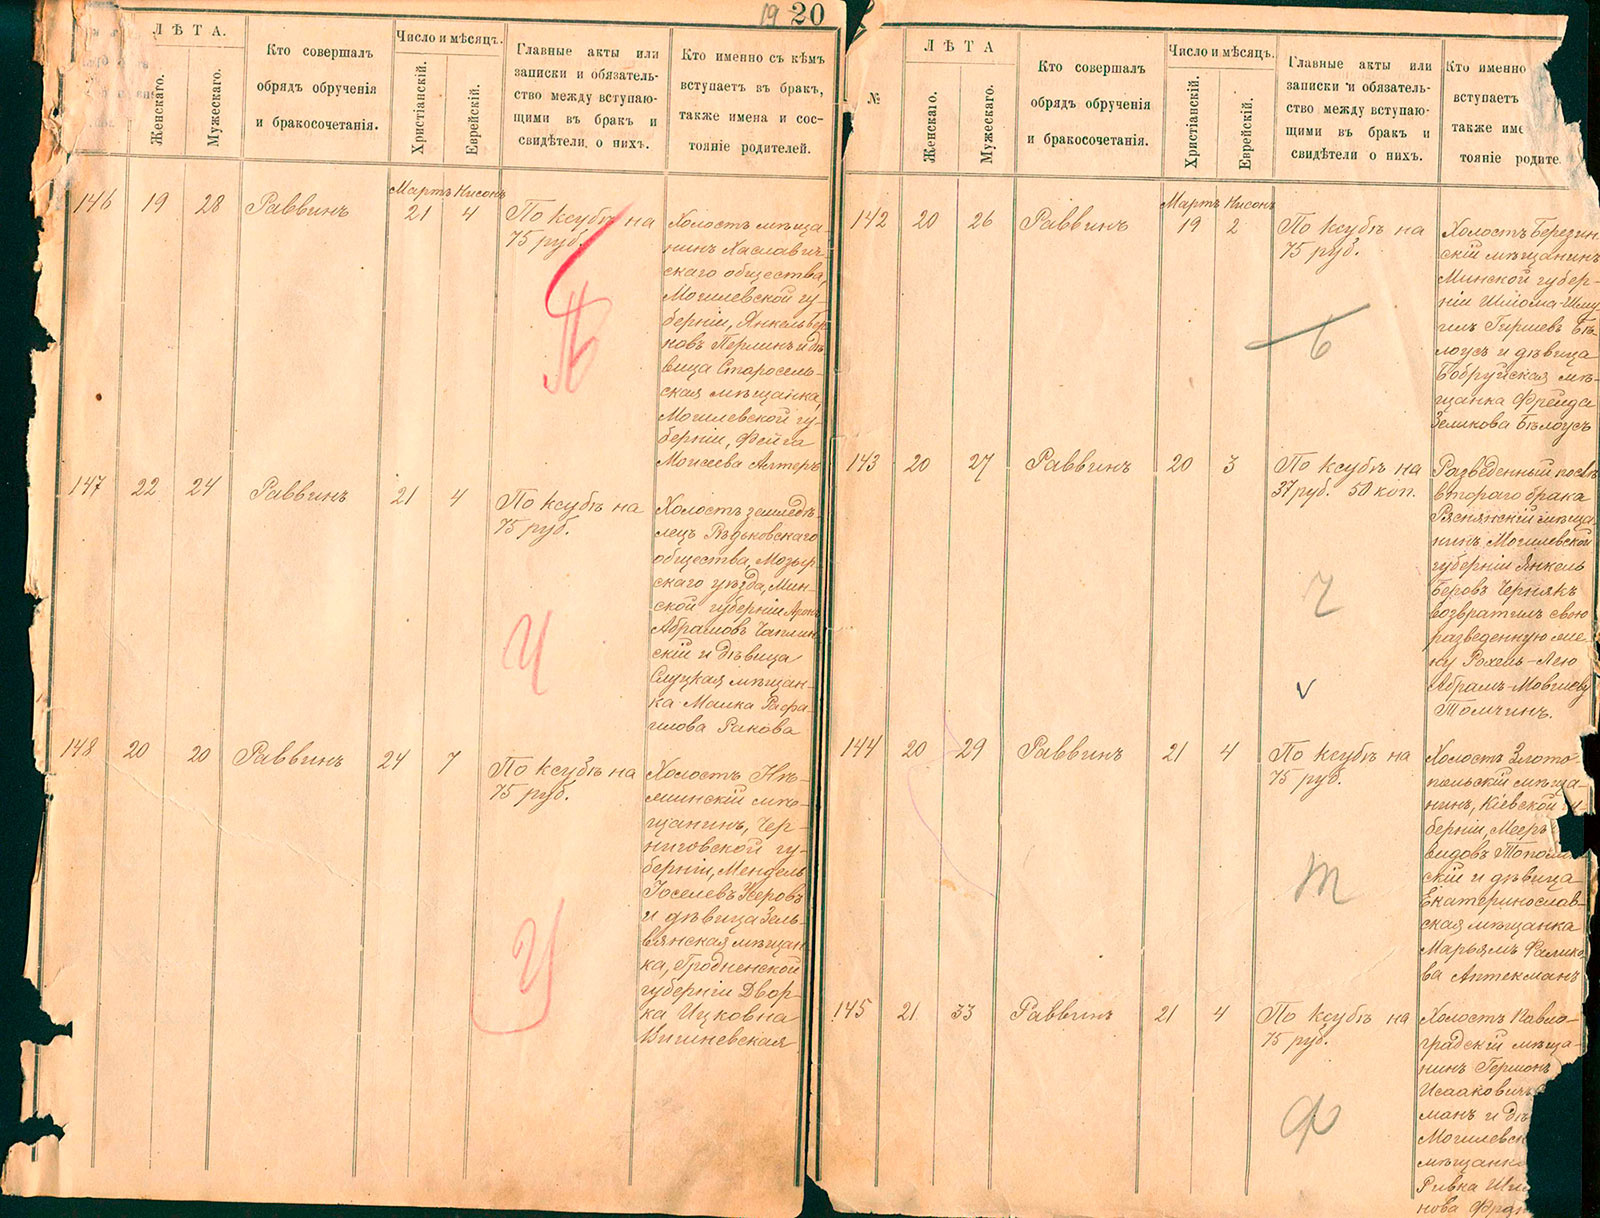 19 20
ЛѢТА.
Женскаго.
Мужескаго.
Кто совершалъ
обрядъ обрученія
и бракосочетанія.
Число и мѣсяцъ.
Христіанскій.
Еврейскій.
Главные акты или
записки и обязатель-
ство между вступаю-
щими въ бракъ и
свидѣтели о нихъ.
Кто именно съ кѣмъ
вступаетъ въ бракъ,
также имена и сос-
тояніе родителей.
Мартъ Нисонъ
146 19 28 Раввинъ 21 4
По ксубѣ на
75 руб.
Холостъ мѣща-
нинъ Хаславич-
скаго общества,
Могилевской гу-
берніи, Янкель Бер
ковъ Перлинъ и дѣ
вица Старосель-
ская мѣщанка,
Могилевской гу-
берніи, Фейга
Моисеева Алтеръ
147 22 24 Раввинъ 21 4
По ксубѣ на
75 руб.
Холостъ земледѣ
лецъ
общества, Мозыр
скаго уѣзда, Мин-
ской губерніи Аронъ
Абрамовъ Чаплин
скій и дѣвица
Слуцкая мѣщан-
ка Малка Рафа-
илова Ракова
148 20 20 Раввинъ 24 7
По ксубѣ на
75 руб.
Холостъ
мѣ-
щанинъ, Чер-
ниговской гу-
берніи, Мендель
Іоселевъ
и дѣвица Зель-
вянская мѣщан
ка, Гродненской
губерніи Двор-
ка Ицковна
Вишневская
№
ЛѢТА
Женскаго.
Мужескаго.
Кто совершалъ
обрядъ обрученія
и бракосочетанія.
Число и мѣсяцъ.
Христіанскій.
Еврейскій.
Главные акты или
записки и обязатель-
ство между вступаю-
щими въ бракъ и
свидѣтели о нихъ.
Кто именно
вступаетъ
также име
тояніе родите
Мартъ Нисонъ
142 20 26 Раввинъ 19 2
По ксубѣ на
75 руб.
Холостъ Березин
скій мѣщанинъ
Минской губер-
ніи Шлиома-Шму
илъ Гиршевъ Бѣ
лоусъ и дѣвица
Бобруйская мѣ-
щанка Фрейда
Зеликова Бѣлоусъ
Б
143 20 27 Раввинъ 20 3
По ксубѣ на
37 руб. 50 коп.
Разведенный послѣ
второго брака
Ряснянскій мѣща
нинъ, Могилевской
губерніи Янкель
Беровъ Чернякъ
возвратилъ свою
разведенную же
ну Рохель-Лею
Абрамъ-Мовшову
Толчинъ.
Ч
144 20 29 Раввинъ 21 4
По ксубѣ на
75 руб.
Холостъ Злото-
польскій мѣща-
нинъ, Кіевской гу-
берніи, Мееръ
видовъ Тополь
скій и дѣвица
Екатеринослав-
ская мѣщанка
Марьямъ Фалико
ва Аптекманъ
Т
145 21 33 Раввинъ 21 4
По ксубѣ на
75 руб.
Холостъ Павло-
градскій мѣща-
нинъ Гершонъ
Исааковичъ
манъ и дѣ
Могилевск
мѣщанка
Ривка
нова
Ф